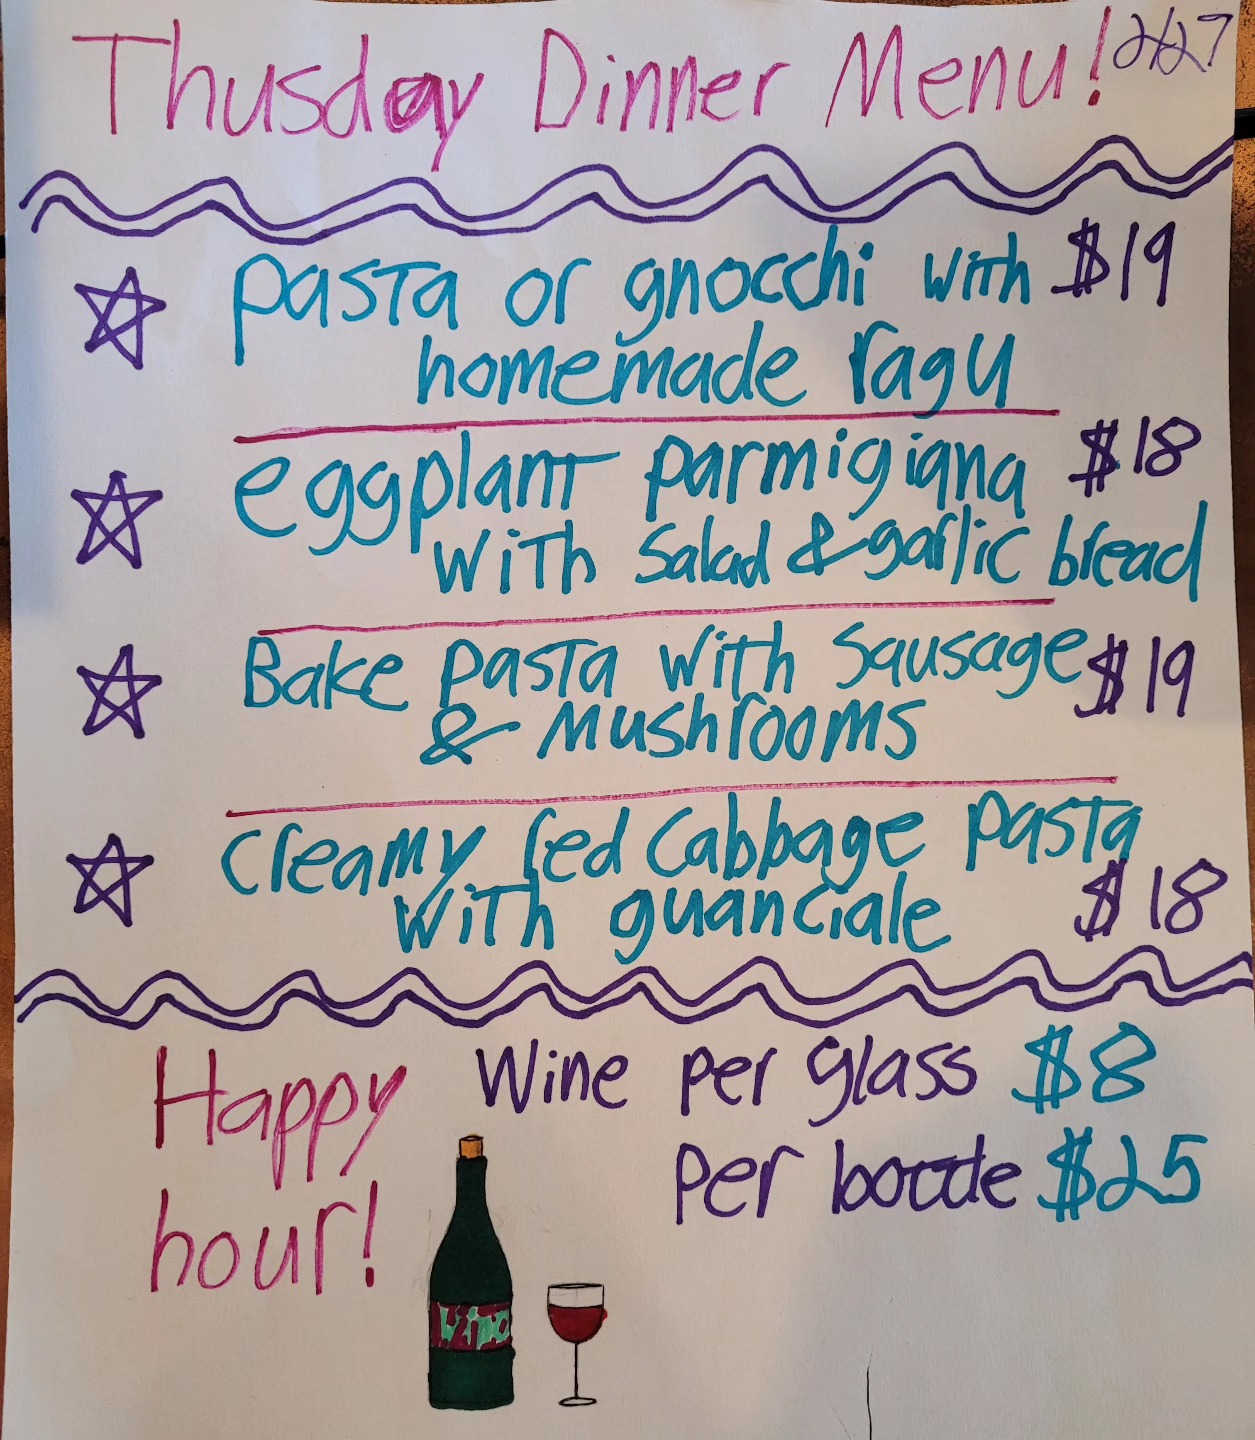 Thusday Dinner Menu! 2/27
pasta or gnocchi with $19
homemade ragu
eggplant parmigiana $18
with salad & garlic bread
Bake pasta with sausage $19
& Mushrooms
creamy red cabbage pasta
with guanciale $18
Happy
hour!
Wine per glass $8
per bottle $25
Vino